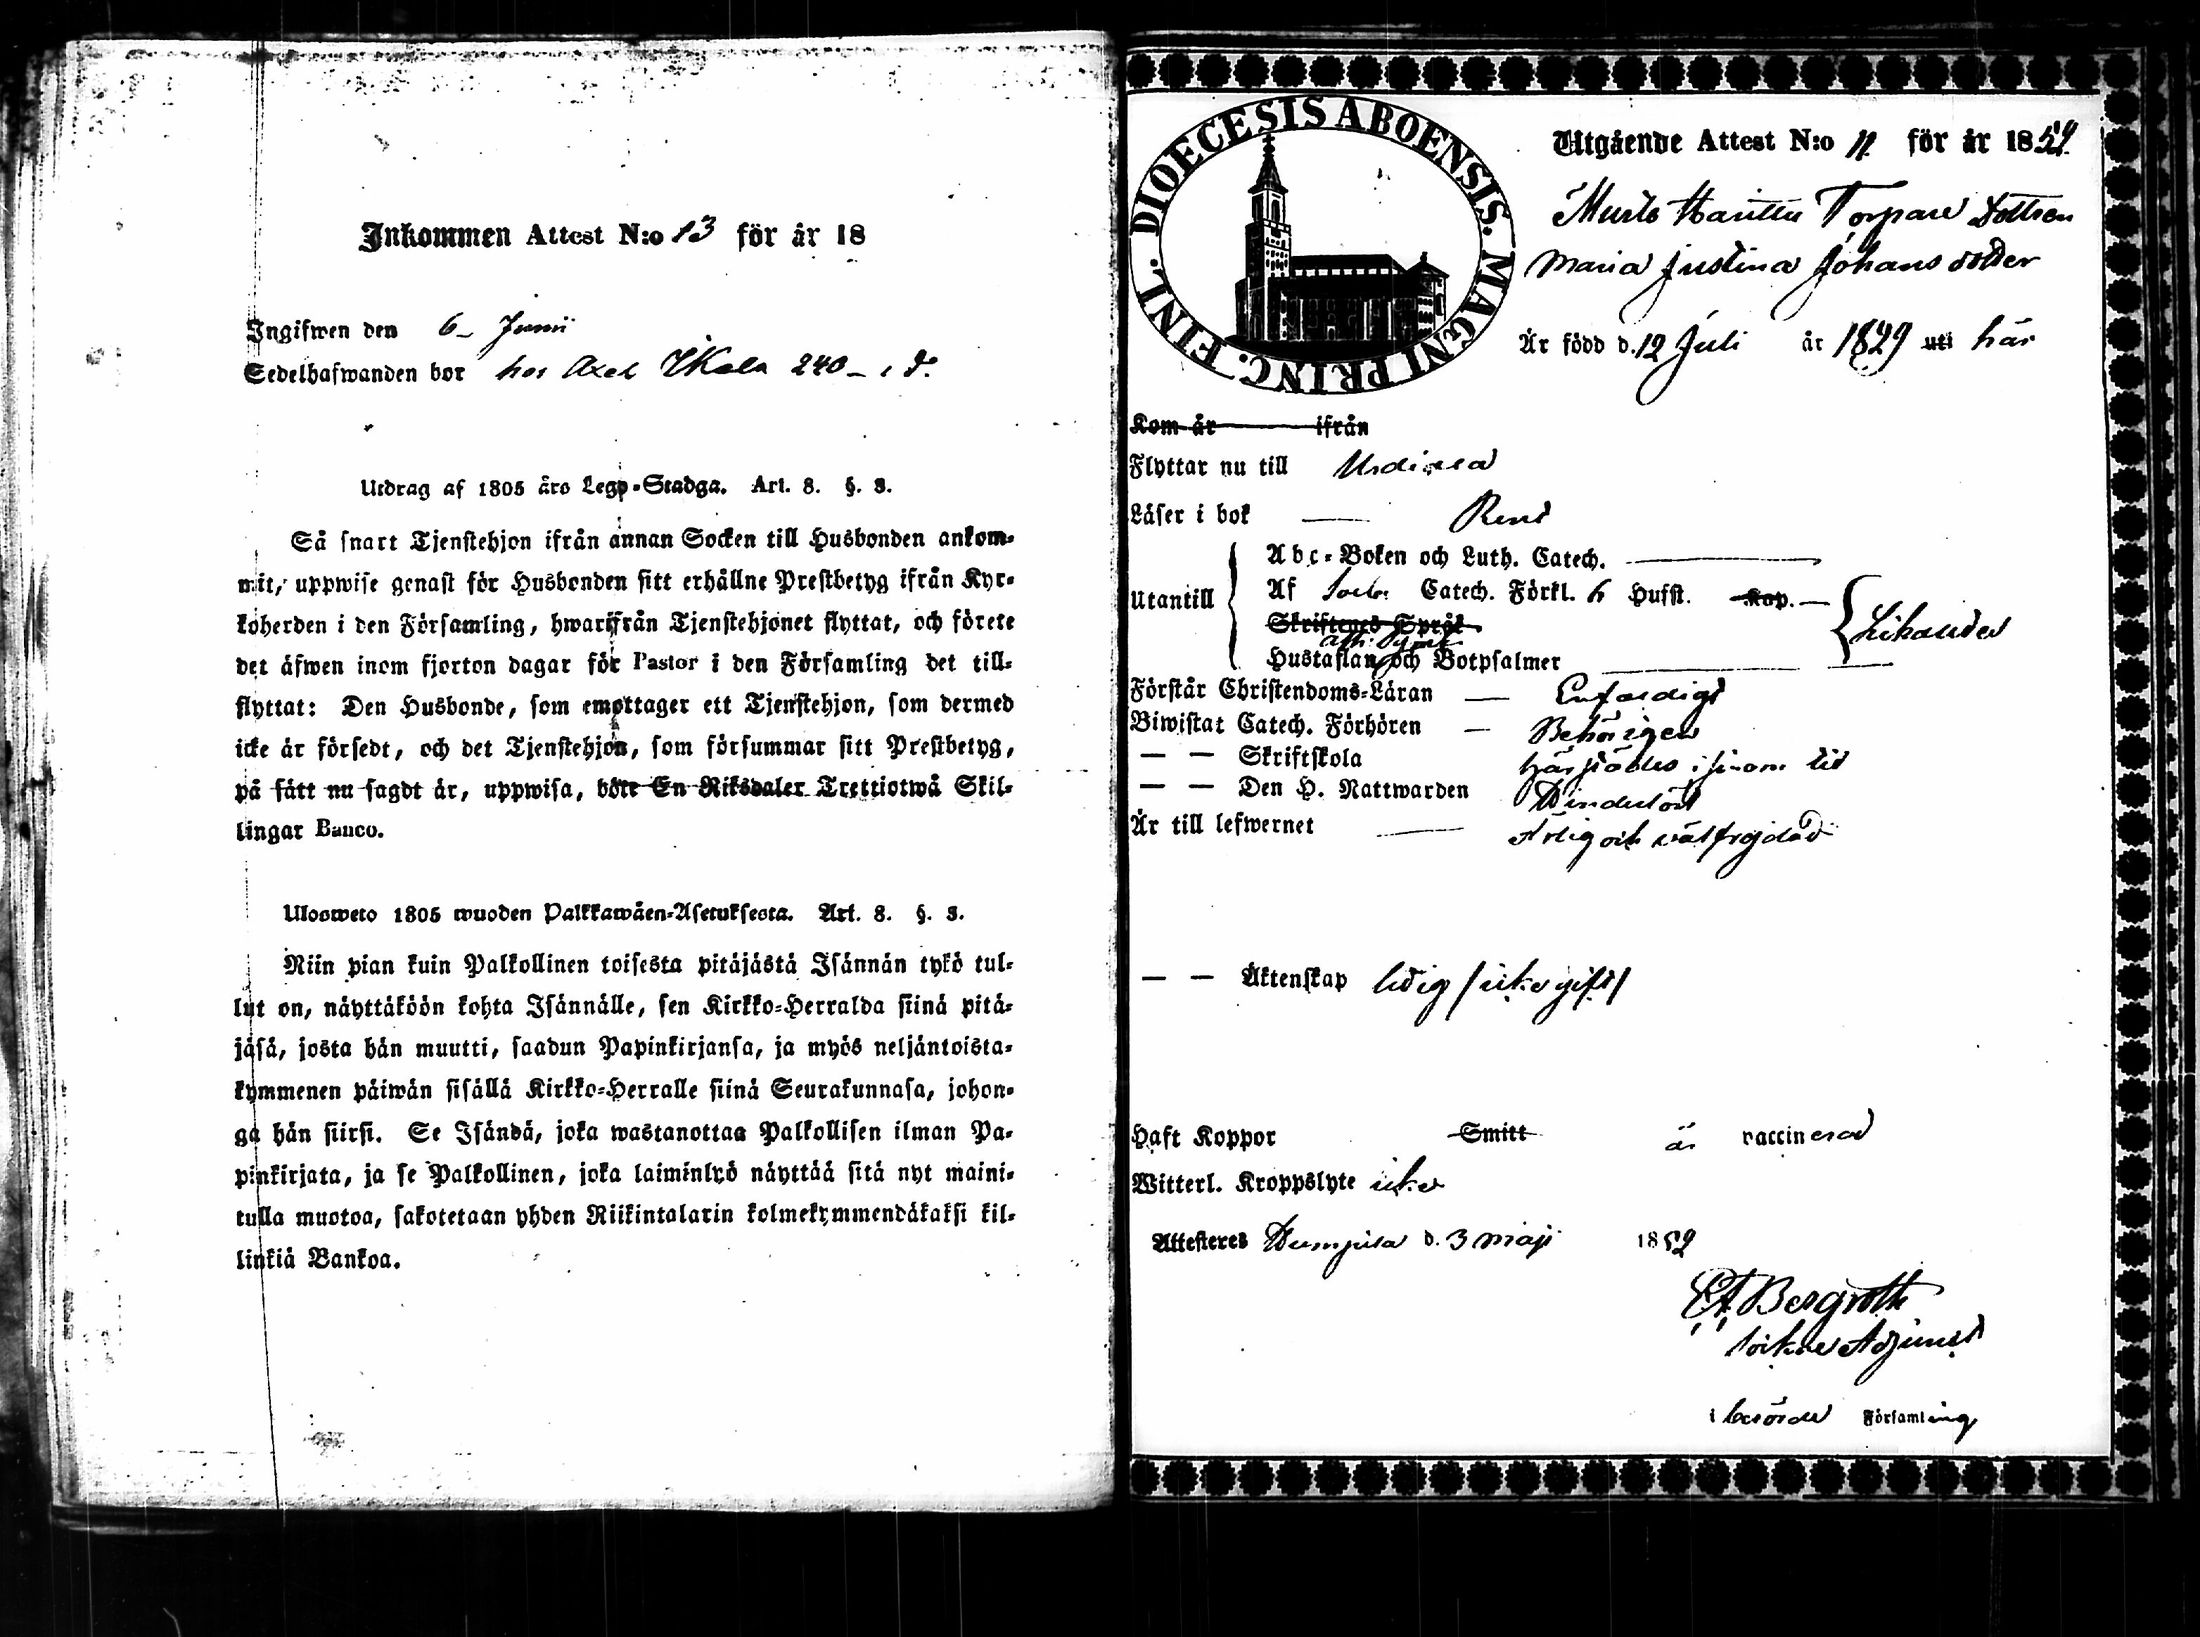 Inkommen Attest N:o 13 för år 18
Ingifwen den 6 Junii
Sedelhafwanden bor hos Axel 240
Utdrag af 1805 års Lego-Stadga. Art. 8. §. 3.
Så snart Tjenstehjon ifrån annan Socken till Husbonden ankom-
mit, uppwise genast för Husbonden sitt erhållne Prestbetyg ifrån Kyr-
koherden i den Församling, hwarifrån Tjenstehjonet flyttat, och förete
det äfwen inom fjorton dagar för Pastor i den Församling det till-
flyttat: Den Husbonde, som emottager ett Tjenstehjon, som dermed
icke är försedt, och det Tjenstehjon, som försummar sitt Prestbetyg,
på sätt nu sagdt är, uppwisa, böte En Riksdaler Trettiotwå Skil-
lingar Banco.
Ulosweto 1805 wuoden Palkkawäen-Asetuksesta. Art. 8. §. 3.
Niin pian kuin Palkollinen toisesta pitäjästä Isännän tykö tul-
lut on, näyttäköön kohta Isännälle, sen Kirkko-Herralda siinä pitä-
jäsä, josta hän muutti, saadun Papinkirjansa, ja myös neljäntoista-
kymmenen päiwän sisällä Kirkko-Herralle siinä Seurakunnasa, johon-
ga hän siirsi. Se Isändä, joka wastanottaa Palkollisen ilman Pa-
pinkirjata, ja se Palkollinen, joka laiminlyö näyttää sitä nyt maini-
tulla muotoa, sakotetaan yhden Riikintalarin kolmekymmendäkaksi kil-
linkiä Bankoa.
DIOECESIS ABOENSIS. MAGNI PRINC. FINL.
Utgående Attest N:o 11 för år 1859
Torpare Dottren
Maria Justina Johansdotter
Är född d. 12 Juli år 1829 uti här
Kom år ifrån
Flyttar nu till
Läser i bok Rent
Abc-Boken och Luth. Catech.
Utantill Af Catech. Förkl. Hufst. Kap.
Skriftenes Språk
Hustaflan och Botpsalmer
Förstår Christendoms-Läran Enfaldigt
Biwistat Catech. Förhören Behörigen
— — Skriftskola i sinom tid
— — Den H. Nattwarden
Är till lefwernet Ärlig och välfrejdad
— — Äktenskap ledig /icke gift/
Haft Koppor Smitt är vaccinerad
Witterl. Kroppslyte icke
Attesteres d. 3 maji 1859
Bergroth
Adjunct
i berörde Församling